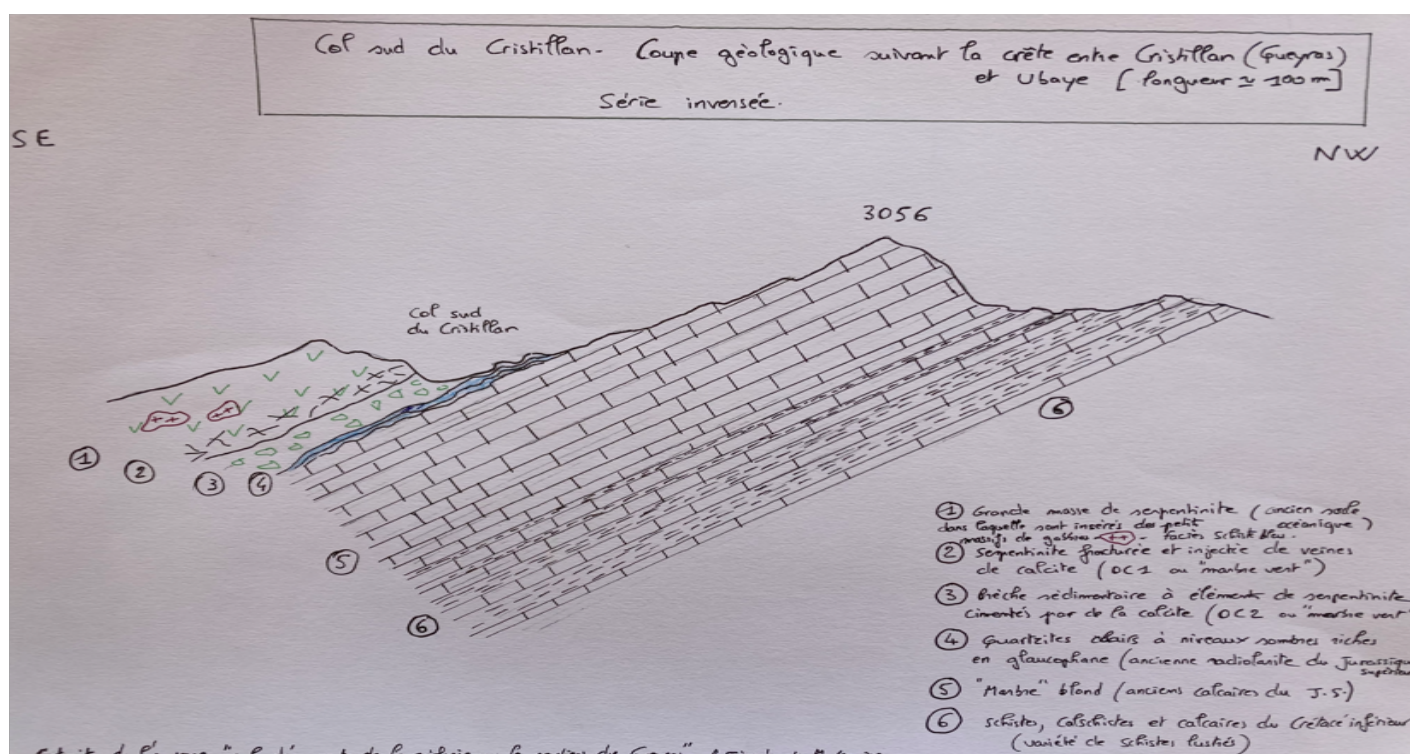 Col sud du Cristillan - Coupe géologique suivant la crête entre Cristillan (Queyras)
et Ubaye [longueur ≃ 100 m]
Série inversée.
SE
NW
3056
Col sud
du Cristillan
1
2
3
4
5
6
6
1 Grande masse de serpentinite (ancien socle
océanique)
dans laquelle sont insérés des petit
massifs de gabbros ++ - faciès schiste bleu.
2 Serpentinite fracturée et injectée de veines
de calcite (OC1 ou "marbre vert")
3 Brèche sédimentaire à éléments de serpentinite
cimentés par de la calcite (OC2 ou "marbre vert"
4 Quartzites clairs à niveaux sombres riches
en glaucophane (ancienne radiolarite du Jurassique
supérieur
5 "Marbre" blond (anciens calcaires du J.S.)
6 schistes, calschistes et calcaires du Crétacé inférieur
(variété de schistes lustrés)